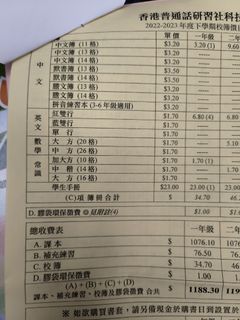 香港普通話研習社科技
2022-2023 年度下學期校簿價
單價 一年級 二年
中文 中文簿 (11 格) $3.20 3.20 (1) 9.60
中文簿 (13 格) $3.20
中文簿 (14 格) $3.20
默書簿 (13 格) $3.50
默書簿 (14 格) $3.50
謄文簿 (13 格) $3.20
謄文簿 (14 格) $3.20
拼音練習本 (3-6 年級適用) $3.20
英文 紅雙行 $1.70 6.80 (4) 6.80
藍雙行 $1.70
單 行 $1.70
數學 大 方 (20 格) $1.70
中 方 (26 格) $1.70
常識 加大方 (10 格) $1.70 1.70 (1)
中 楷 (14 格) $1.70
大 方 (16 格) $1.70
學生手冊 $23.00 23.00 (1) 23.00
(C)項 簿 冊 合 計 $ 34.70 46.
D. 膠袋環保徵費 $1.00 $1.0
總收費表 一年級 二年
A. 課 本 $ 1076.10 1076
B. 補充練習 $ 76.50 76.5
C. 校 簿 $ 34.70 46.
D. 膠袋環保徵費 $ 1.00 1
(A) + (B) + (C) + (D)
課本、補充練習、校簿及膠袋徵費 合共 $ 1188.30 119
※ 如欲購買書套，請另備現金於購書日到設置於